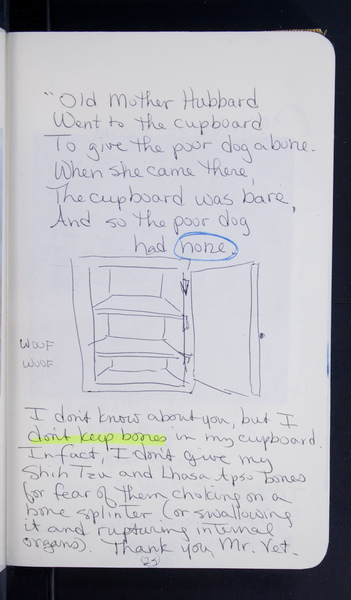 "Old Mother Hubbard
Went to the cupboard
To give the poor dog a bone.
When she came there,
The cupboard was bare,
And so the poor dog
had none.
WOOF
WOOF
I don't know about you, but I
don't keep bones in my cupboard.
In fact, I don't give my
Shih Tzu and Lhasa Apso bones
for fear of them choking on a
bone splinter (or swallowing
it and rupturing internal
organs). Thank you, Mr. Vet.
(23)